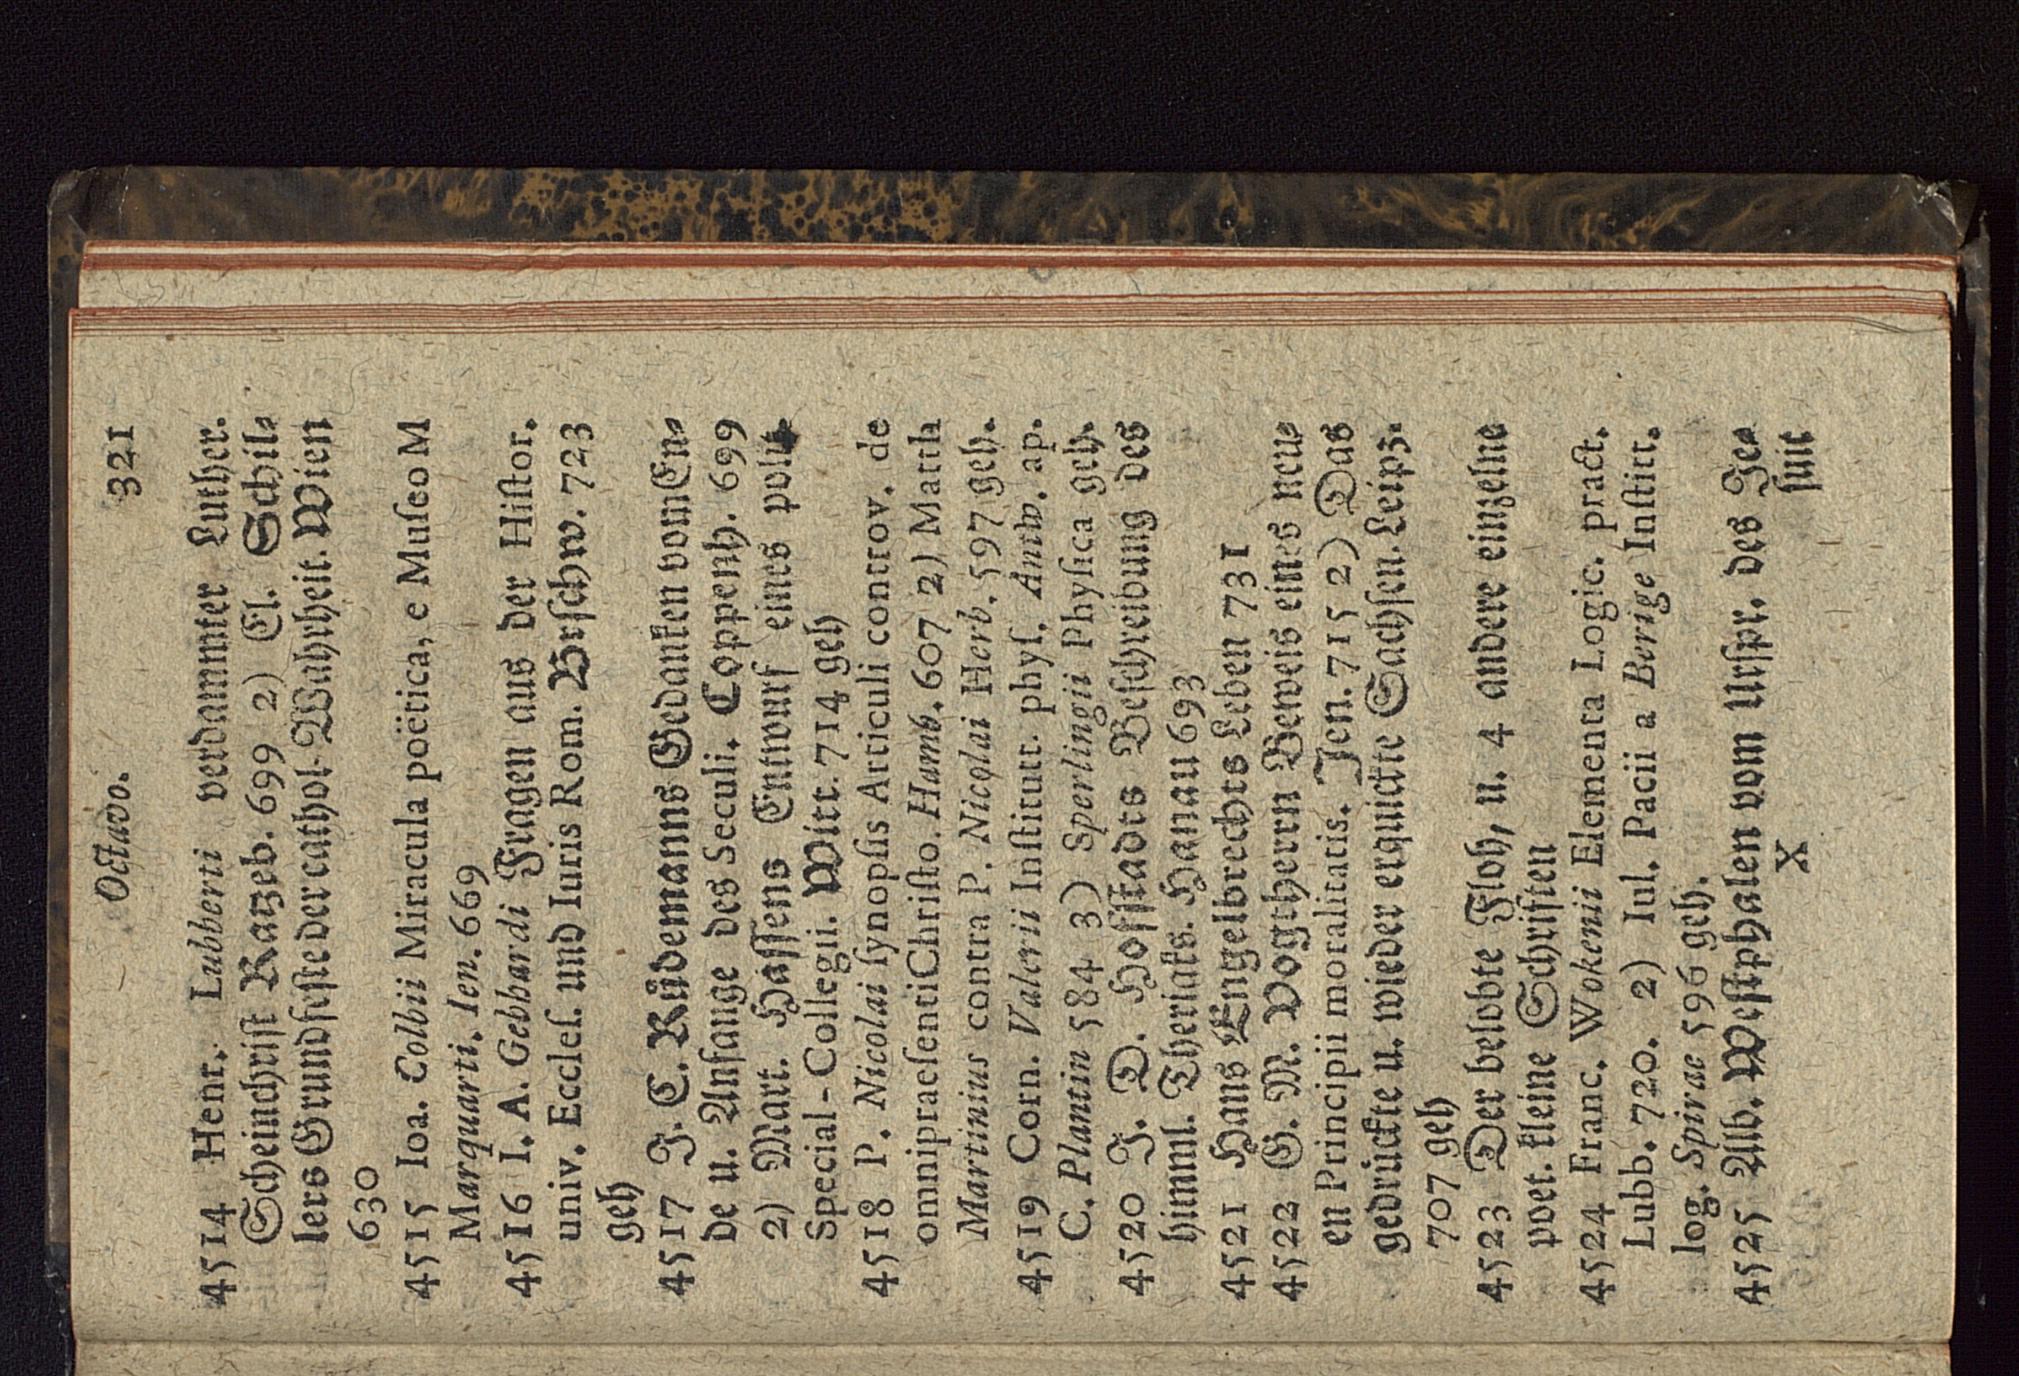 Octavo. 321
4514 Henr. Lubberti verdammter Luther.
Scheinchrist Ratzeb. 699 2) El. Schil⸗
lers Grundfeste der cathol. Wahrheit. Wien
630
4515 Ioa. Colbii Miracula poëtica, e Museo M
Marquarti. Ien. 669
4516 I. A. Gebhardi Fragen aus der Histor.
univ. Eccles. und Iuris Rom. Brschw. 723
geh
4517 J. C. Rüdemanns Gedanken vom En⸗
de u. Anfange des Seculi. Coppenh. 699
2) Mart. Hassens Entwurf eines polit.
Special-Collegii. Witt. 714 geh
4518 P. Nicolai synopsis Articuli controv. de
omnipraesenti Christo. Hamb. 607 2) Matth
Martinius contra P. Nicolai Herb. 597 geh.
4519 Corn. Valerii Institutt. phys. Antw. ap.
C. Plantin 584 3) Sperlingii Physica geh.
4520 J. D. Hofstadts Beschreibung des
himml. Theriaks. Hanau 693
4521 Hans Engelbrechts Leben 731
4522 G. M. Vogtherrn Beweis eines neu⸗
en Principii moralitatis. Jen. 715 2) Das
gedrückte u. wieder erquickte Sachsen. Leipz.
707 geh
4523 Der belobte Floh, u. 4 andere einzelne
poet. kleine Schriften
4524 Franc. Wokenii Elementa Logic. pract.
Lubb. 720. 2) Iul. Pacii a Berige Institt.
log. Spirae 596 geh.
4525 Alb. Westphalen vom Urspr. des Je⸗
X suit